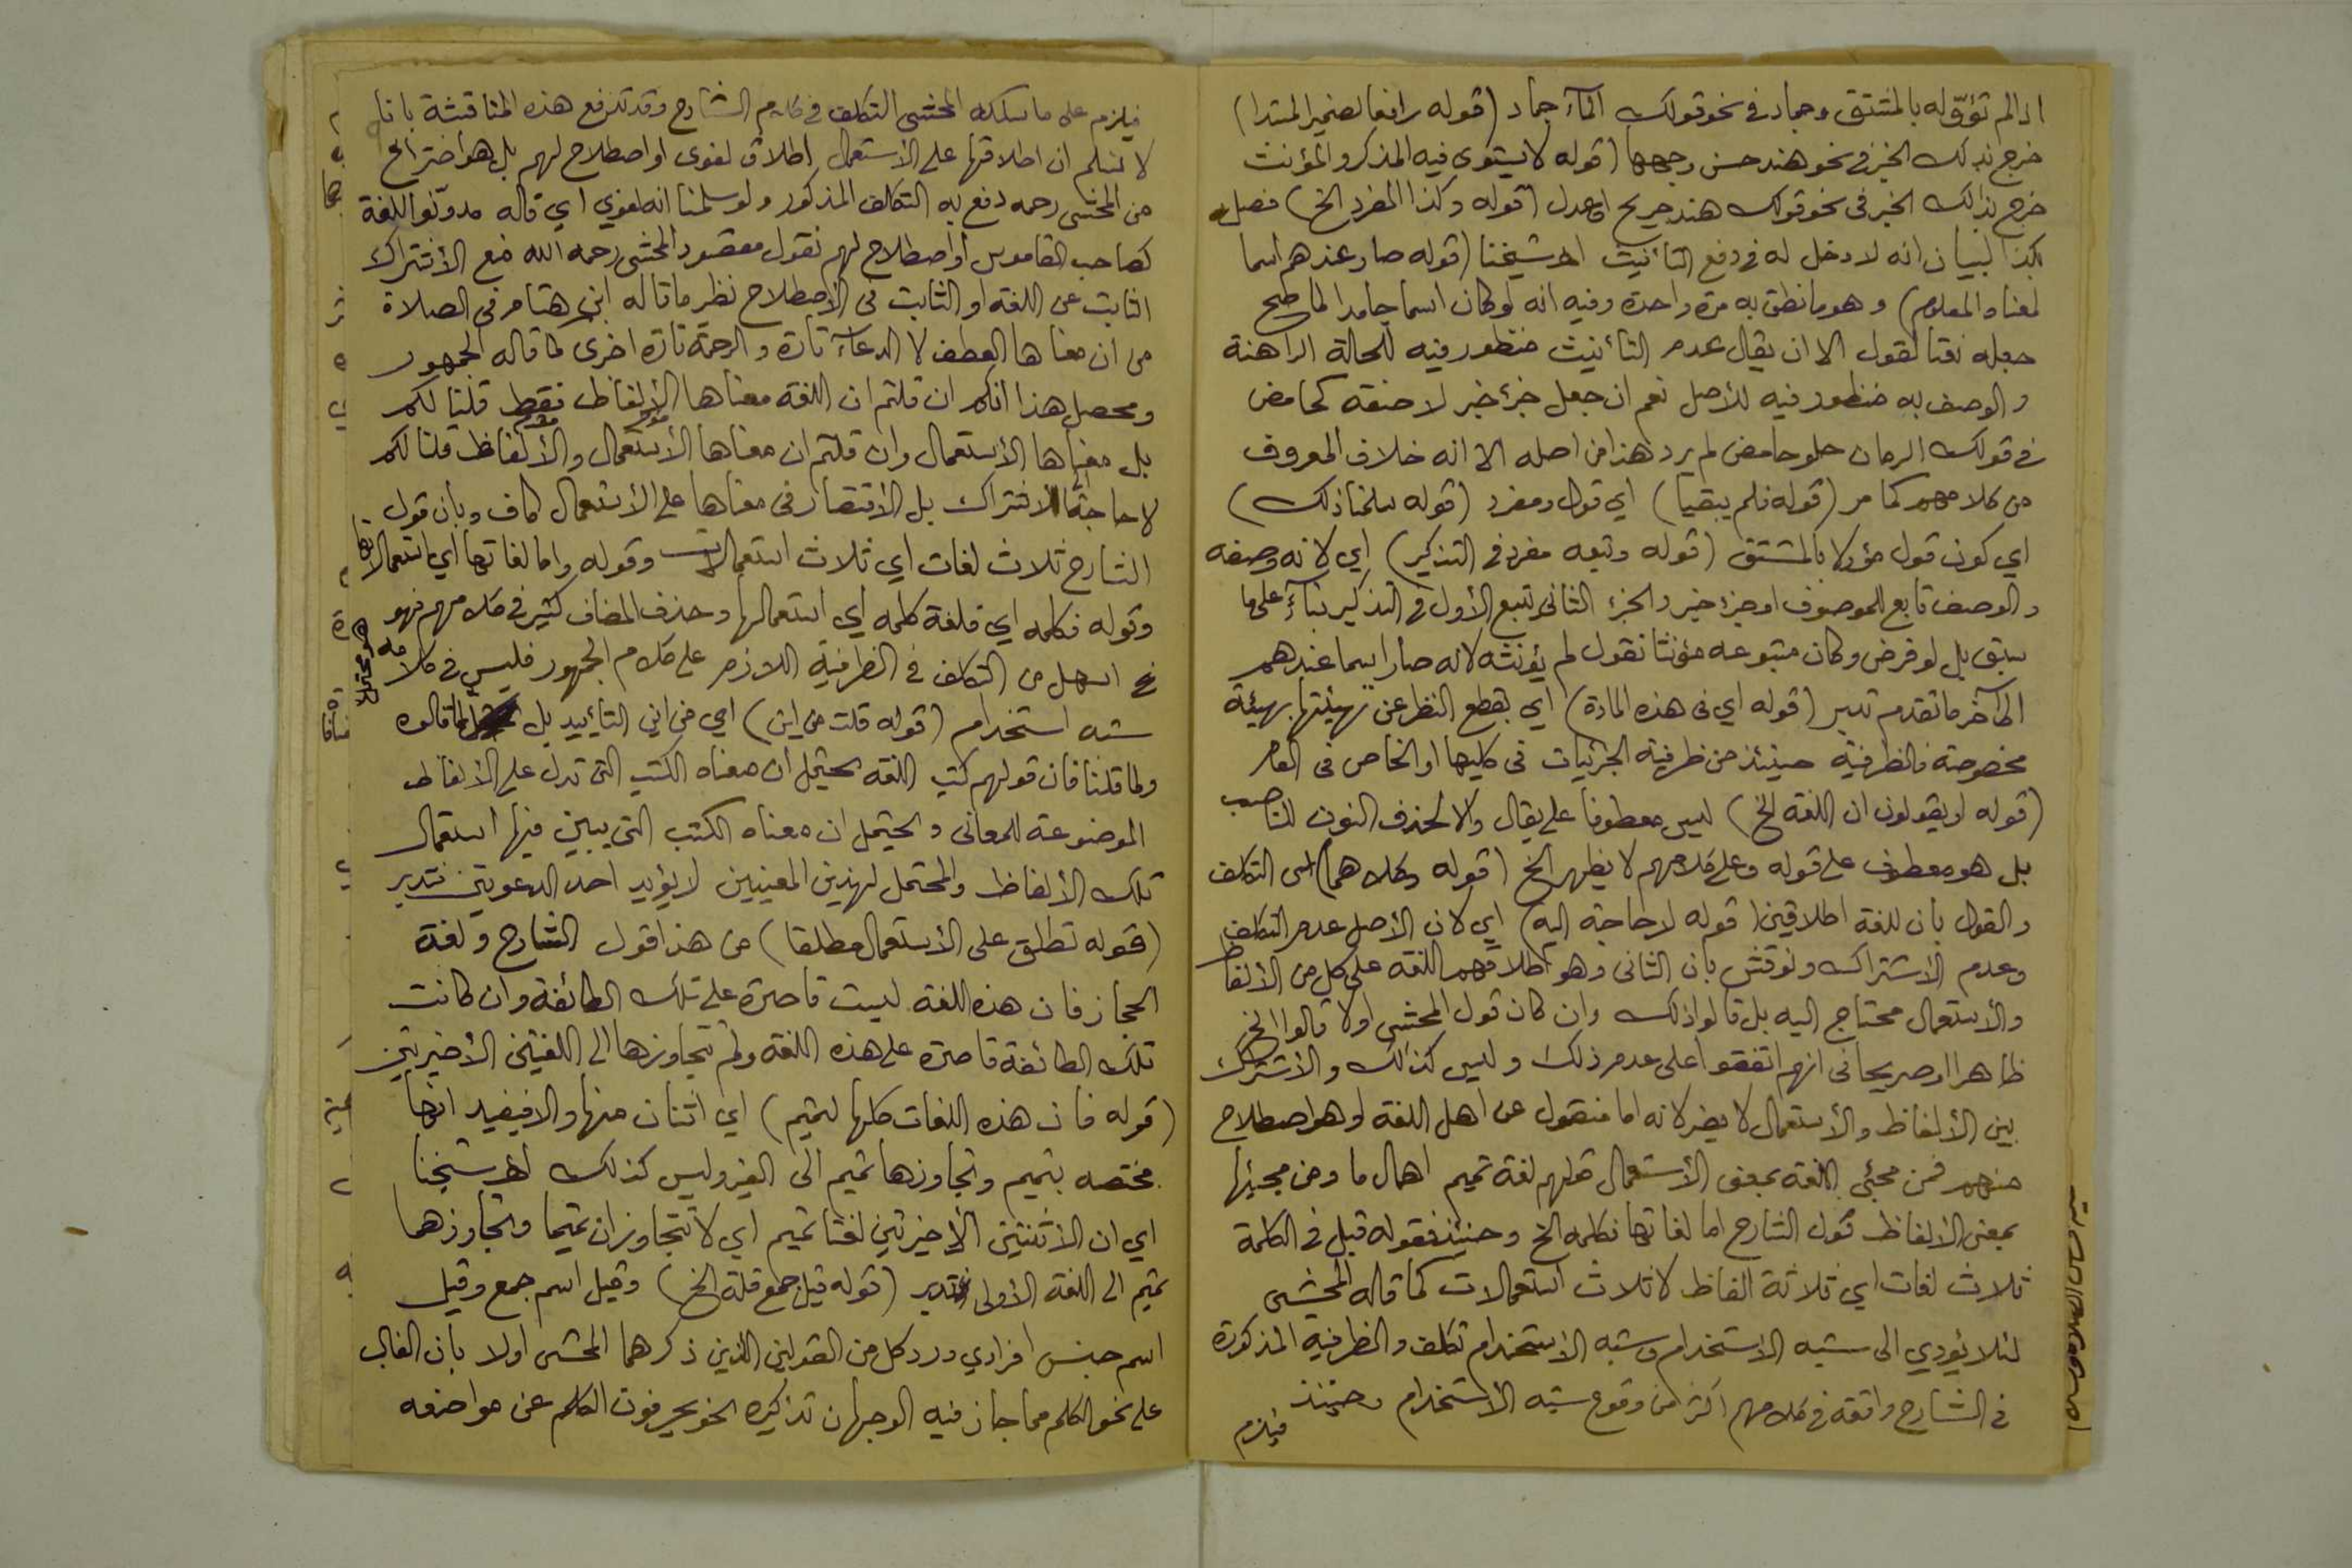 اذا لم تؤوّله بالمشتق وجماد في نحو قولك الماء جماد (قوله رافعا لضمير المبتدا)
خرج بذلك الخبر في نحو هند حسن وجهها (قوله لا يستوي فيه المذكر والمؤنث
خرج بذالك الخبر في نحو قولك هند جريح او عدل (قوله وكذا المفرد الخ) فصله
بكذا لبيان انه لا دخل له في دفع التأنيث اه شيخنا (قوله صار عندهم اسما
لمعناه المعلوم) وهو ما نطق به مرة واحدة وفيه انه لو كان اسما جامدا لما صح
جعله نعتا لقول الا ان يقال عدم التأنيث منظور فيه للحالة الراهنة
والوصف به منظور فيه للأصل نعم ان جعل جزء خبر لا صفة كحامض
في قولك الرمان حلو حامض لم يرد هذا من اصله الا انه خلاف المعروف
من كلامهم كما مر (قوله فلم يبقيا) اي قول ومفرد (قوله سلمنا ذلك)
اي كون قول مؤولا بالمشتق (قوله وتبعه مفرد في التذكير) اي لانه وصفه
والوصف تابع للموصوف او جزء خبر والجزء الثاني يتبع الأول في التذكير بناءً على ما
سبق بل لو فرض وكان متبوعه مؤنثا نقول لم يؤنثه لانه صار اسما عندهم
الى آخر ما تقدم تدبر (قوله اي في هذه المادة) اي بقطع النظر عن تهيئتها بهيئة
مخصوصة فالظرفية حينئذ من ظرفية الجزئيات في كليها او الخاص في العام
(قوله او يقولون ان اللغة الخ) ليس معطوفا على يقال والا لحذف النون للناصب
بل هو معطوف على قوله وعلى كلامهم لا يظهر الخ (قوله وكلاهما) اي التكلف
والقول بان للغة اطلاقين (قوله لا حاجة اليه) اي لان الأصل عدم التكلف
وعدم الاشتراك ونوقش بان الثاني وهو اطلاقهم اللغة على كل من الألفاظ
والأستعمال محتاج اليه بل قالوا ذلك وان كان قول المحشي اولا قالوا الخ
ظاهرا او صريحا في انهم اتفقوا على عدم ذلك وليس كذالك والأشتراك
بين الألفاظ والأستعمال لا يضر لانه اما منقول عن اهل اللغة او هو اصطلاح
منهم فمن مجئي اللغة بمعنى الأستعمال قولهم لغة تميم اهمال ما ومن مجيئها
بمعنى الألفاظ قول الشارح اما لغاتها فكلمه الخ وحينئذ فقوله قبل في الكلمة
ثلاث لغات اي ثلاثة الفاظ لا ثلاث استعمالات كما قاله المحشي
لئلا يؤدي الى شبه الاستخدام وشبه الاستخدام تكلف والظرفية المذكورة
في الشارح واقعة في كلامهم اكثر من وقوع شبه الأستخدام وحينئذ
فيلزم
فيلزم على ما سلكه المحشي التكلف في كلام الشارح وقد تدفع هذه المناقشة بانا
لا نسلم ان اطلاقها على الأستعمال اطلاق لغوي او اصطلاح لهم بل هو اختراع
من المحشي رحمه دفع به التكلف المذكور ولو سلمنا انه لغوي اي قاله مدوّنوا اللغة
كصاحب القاموس او اصطلاح لهم نقول مقصود المحشي رحمه الله منع الأشتراك
الثابت عن اللغة او الثابت في الأصطلاح نظير ما قاله ابن هشام في الصلاة
من ان معناها العطف لا الدعاء تارة والرحمة تارة اخرى كما قاله الجمهور
ومحصل هذا انكم ان قلتم ان اللغة معناها الألفاظ فقط قلنا لكم
بل معناها الأستعمال وان قلتم ان معناها الأستعمال والألفاظ قلنا لكم
لا حاجة للاشتراك بل الأقتصار في معناها على الأستعمال كاف وبأن قول
الشارح ثلاث لغات اي ثلاث استعمالات وقوله واما لغاتها اي استعمالاتها
وقوله فكلمه اي فلغة كلمه اي استعمالها وحذف المضاف كثير في كلامهم فهو
ح اسهل من التكلف في الظرفية اللازم على كلام الجمهور فليس في كلامه
شبه استخدام (قوله قلت من اين) اي من اين التأييد بل هو محتمل لما قالوه
ولما قلنا فان قولهم كتب اللغة يحتمل ان معناه الكتب التي تدل على الألفاظ
الموضوعة للمعاني ويحتمل ان معناه الكتب التي يبين فيها استعمال
تلك الألفاظ والمحتمل لهذين المعنيين لا يؤيد احد الدعوتين فتدبر
(قوله تطلق على الأستعمال مطلقا) من هذا قول الشارح ولغة
الحجاز فان هذه اللغة ليست قاصرة على تلك الطائفة وان كانت
تلك الطائفة قاصرة على هذه اللغة ولم تتجاوزها الى اللغتين الأخيرتين
(قوله فان هذه اللغات كلها لتميم) اي اثنان منها والا فيفيد انها
مختصه بتميم وتجاوزها تميم الى الغير وليس كذلك اه شيخنا
اي ان الأثنتين الأخيرتين لغتا تميم اي لا تتجاوزان تميما وتجاوزهما
تميم الى اللغة الأولى فتدبر (قوله قيل جمع قلة الخ) وقيل اسم جمع وقيل
اسم جنس افرادي ورد كل من القولين الذين ذكرهما المحشي اولا بان الغالب
على نحو الكلم مما جاز فيه الوجهان تذكيره نحو يحرفون الكلم عن مواضعه